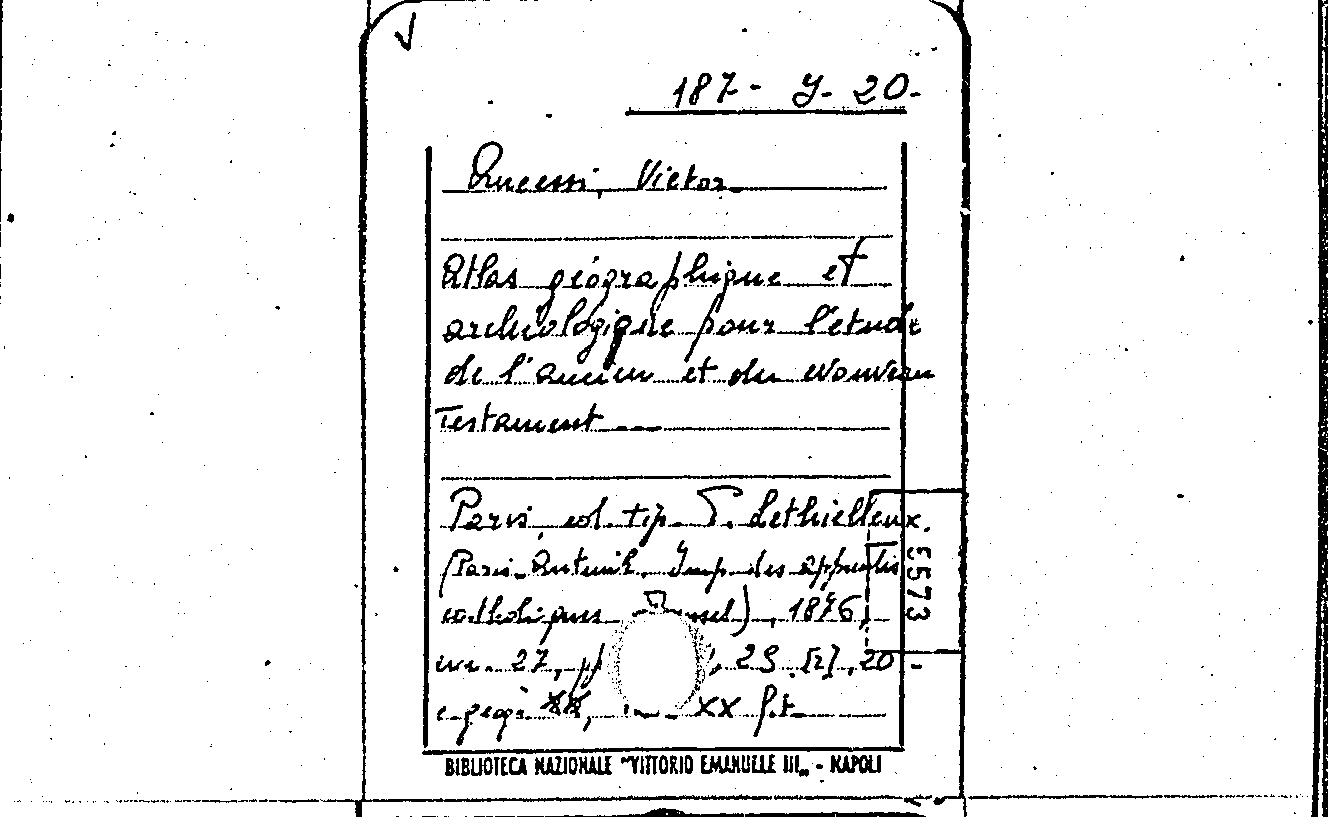 187- Y- 20-
Ancessi, Victor
Atlas géographique et
archéologique pour l'étude
de l'ancien et du Nouveau
Testament
Paris, ed. tip. P. Lethielleux.
(Paris-Auteuil. Imp. des apprentis
catholiques ), 1876,
cm. 27, pp , 28 [2], 20 -
XX f.t.
5573
BIBLIOTECA NAZIONALE "VITTORIO EMANUELLE III„ - NAPOLI